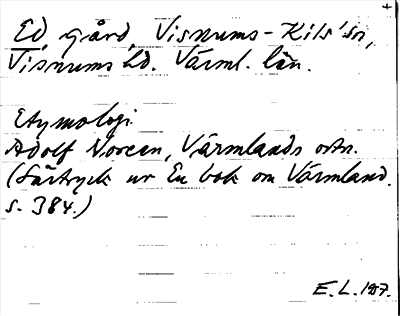 Ed, gård, Visnums-Kils' sn,
Visnums hd. Värml. län.
Etymologi
Adolf Noreen, Värmlands ortn.
(Särtryck ur En bok om Värmland.
s. 384.)
E. L. 1917.